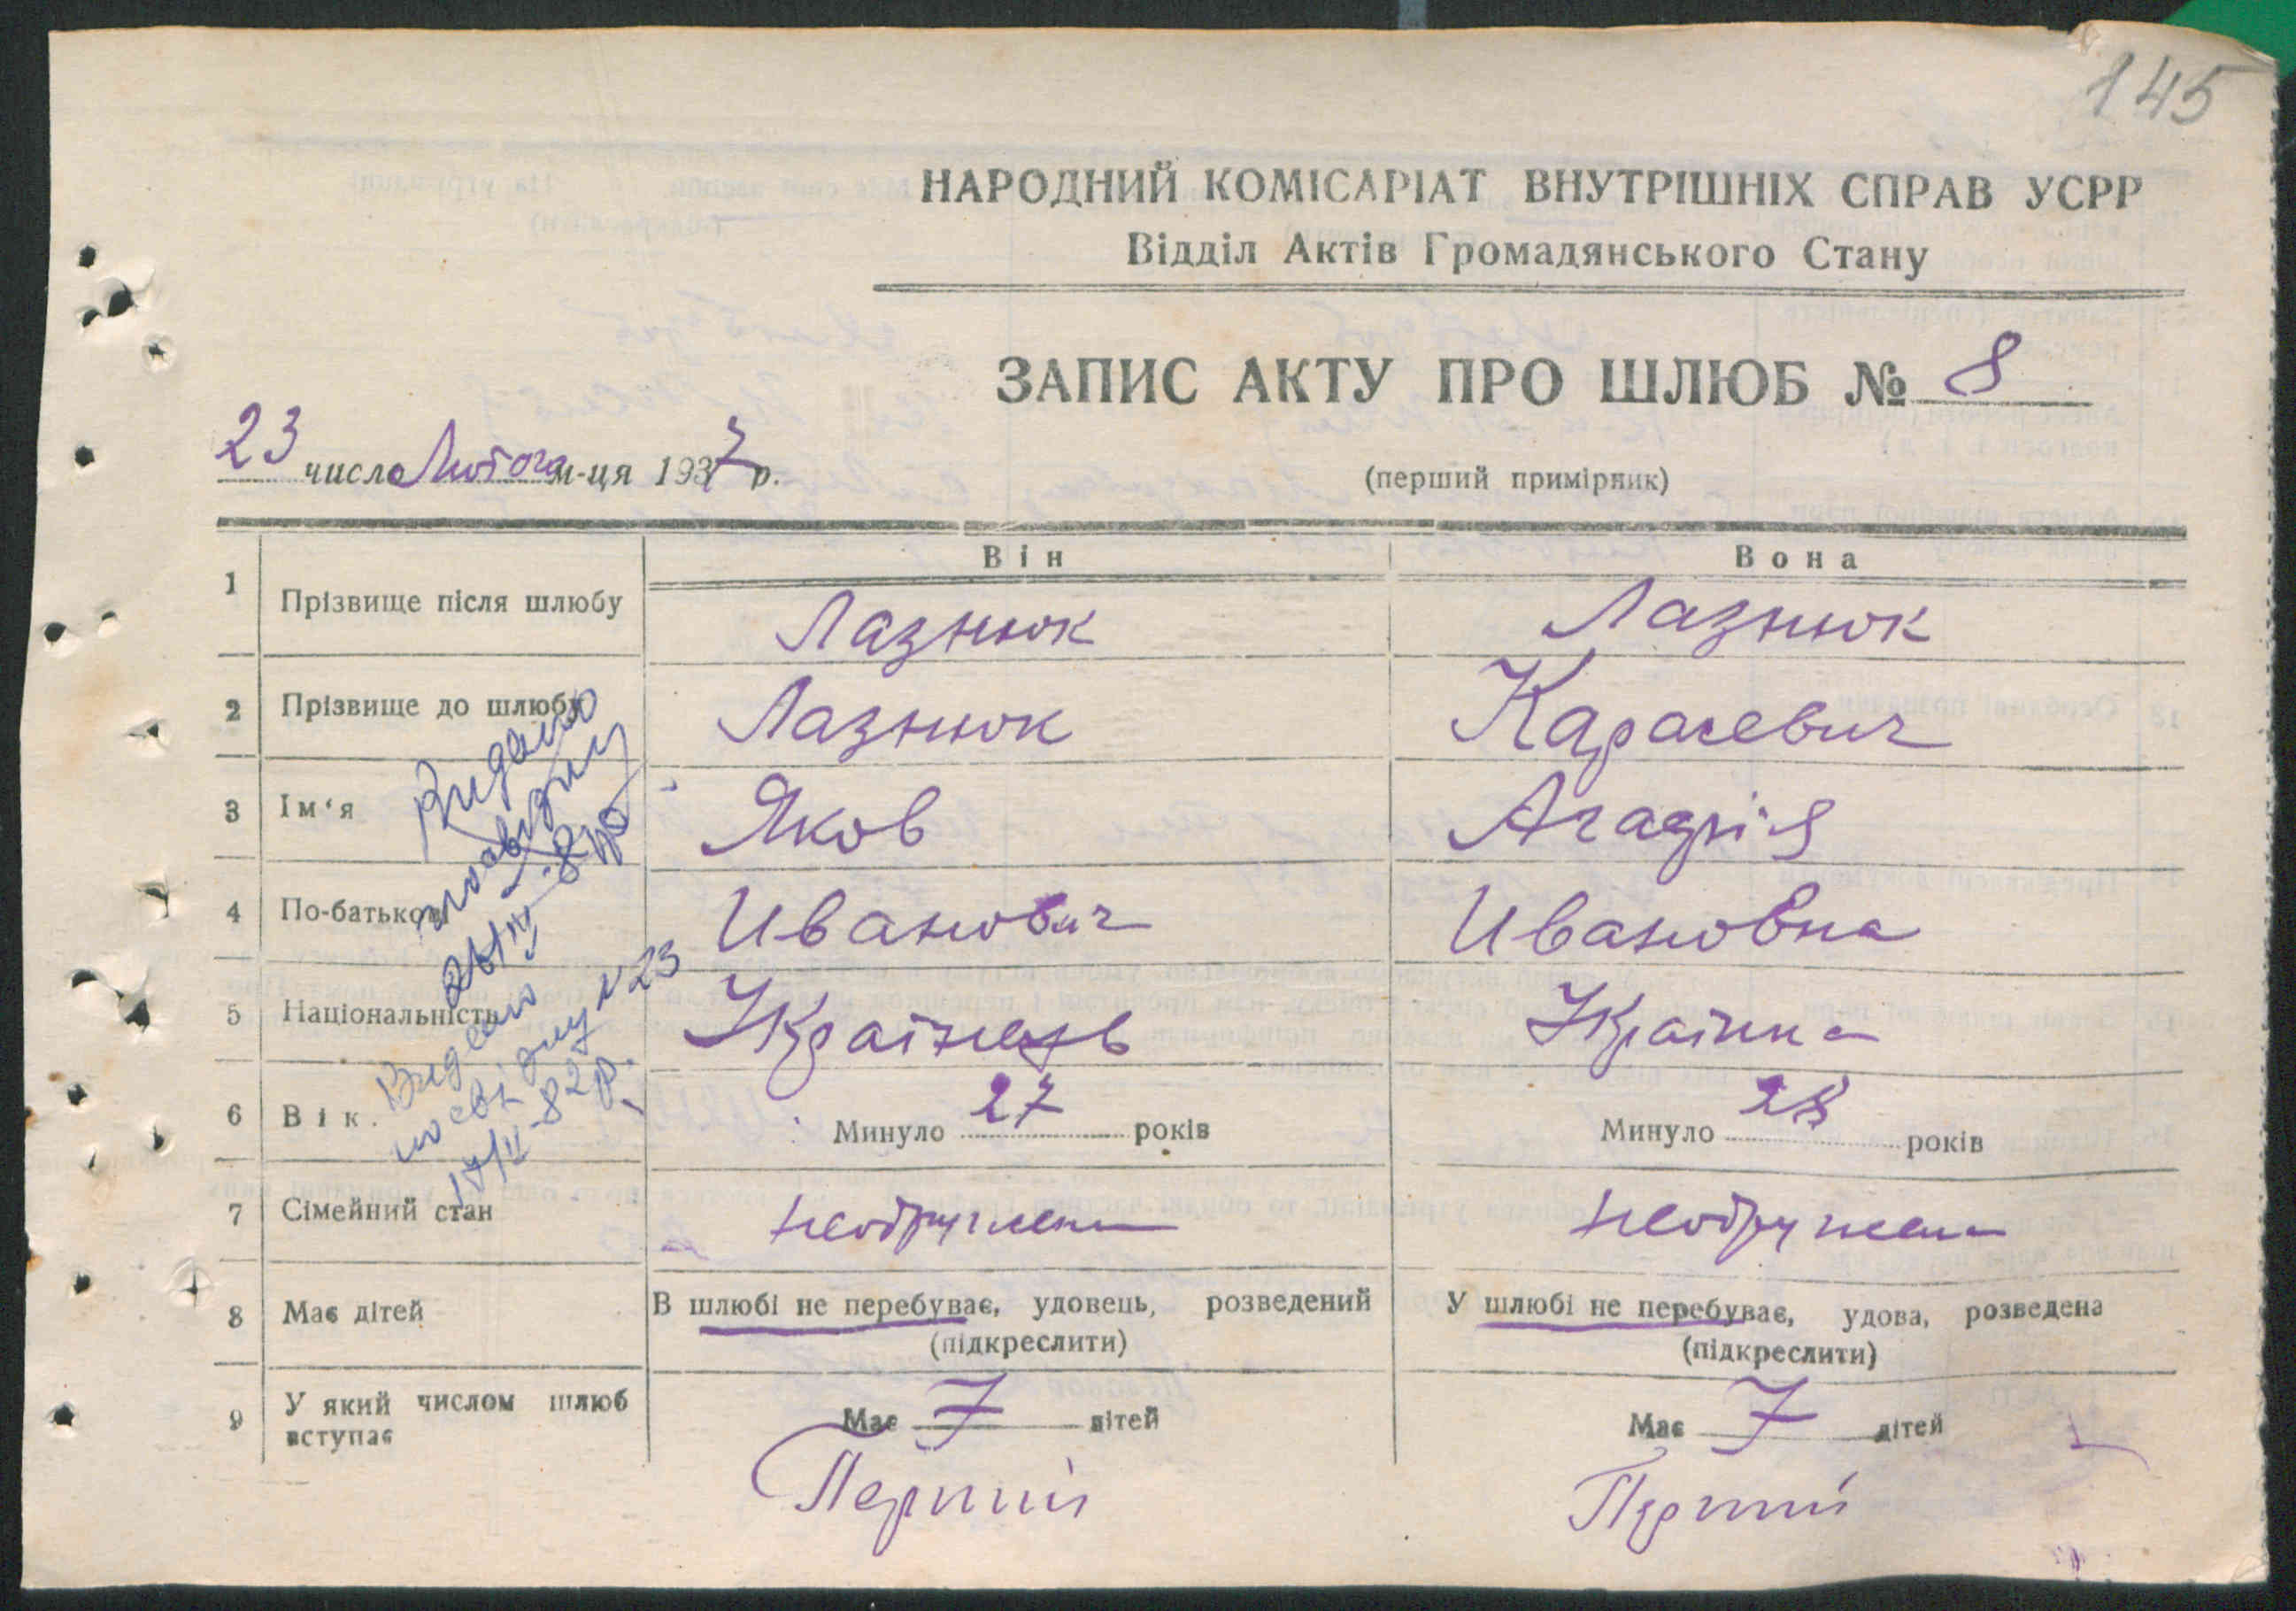 145
НАРОДНИЙ КОМІСАРІАТ ВНУТРІШНІХ СПРАВ УСРР
Відділ Актів Громадянського Стану
ЗАПИС АКТУ ПРО ШЛЮБ № 8
23 числа Лютого м-ця 1937 р.
(перший примірник)
Він Вона
1 Прізвище після шлюбу Лазнюк Лазнюк
2 Прізвище до шлюбу Лазнюк Карасевич
3 Ім'я Яков Агадрія
4 По-батькові Иванович Ивановна
5 Національність Українець Українка
6 Вік. Минуло 27 років Минуло 28 років
7 Сімейний стан необружен необружена
8 Має дітей В шлюбі не перебуває, удовець, розведений У шлюбі не перебуває, удова, розведена
(підкреслити) (підкреслити)
9 У який числом шлюб вступає Має дітей Має дітей
Перший Перший
Видано
довідку
26/IV-82р
Видано
довідку №23
17/II-82р.